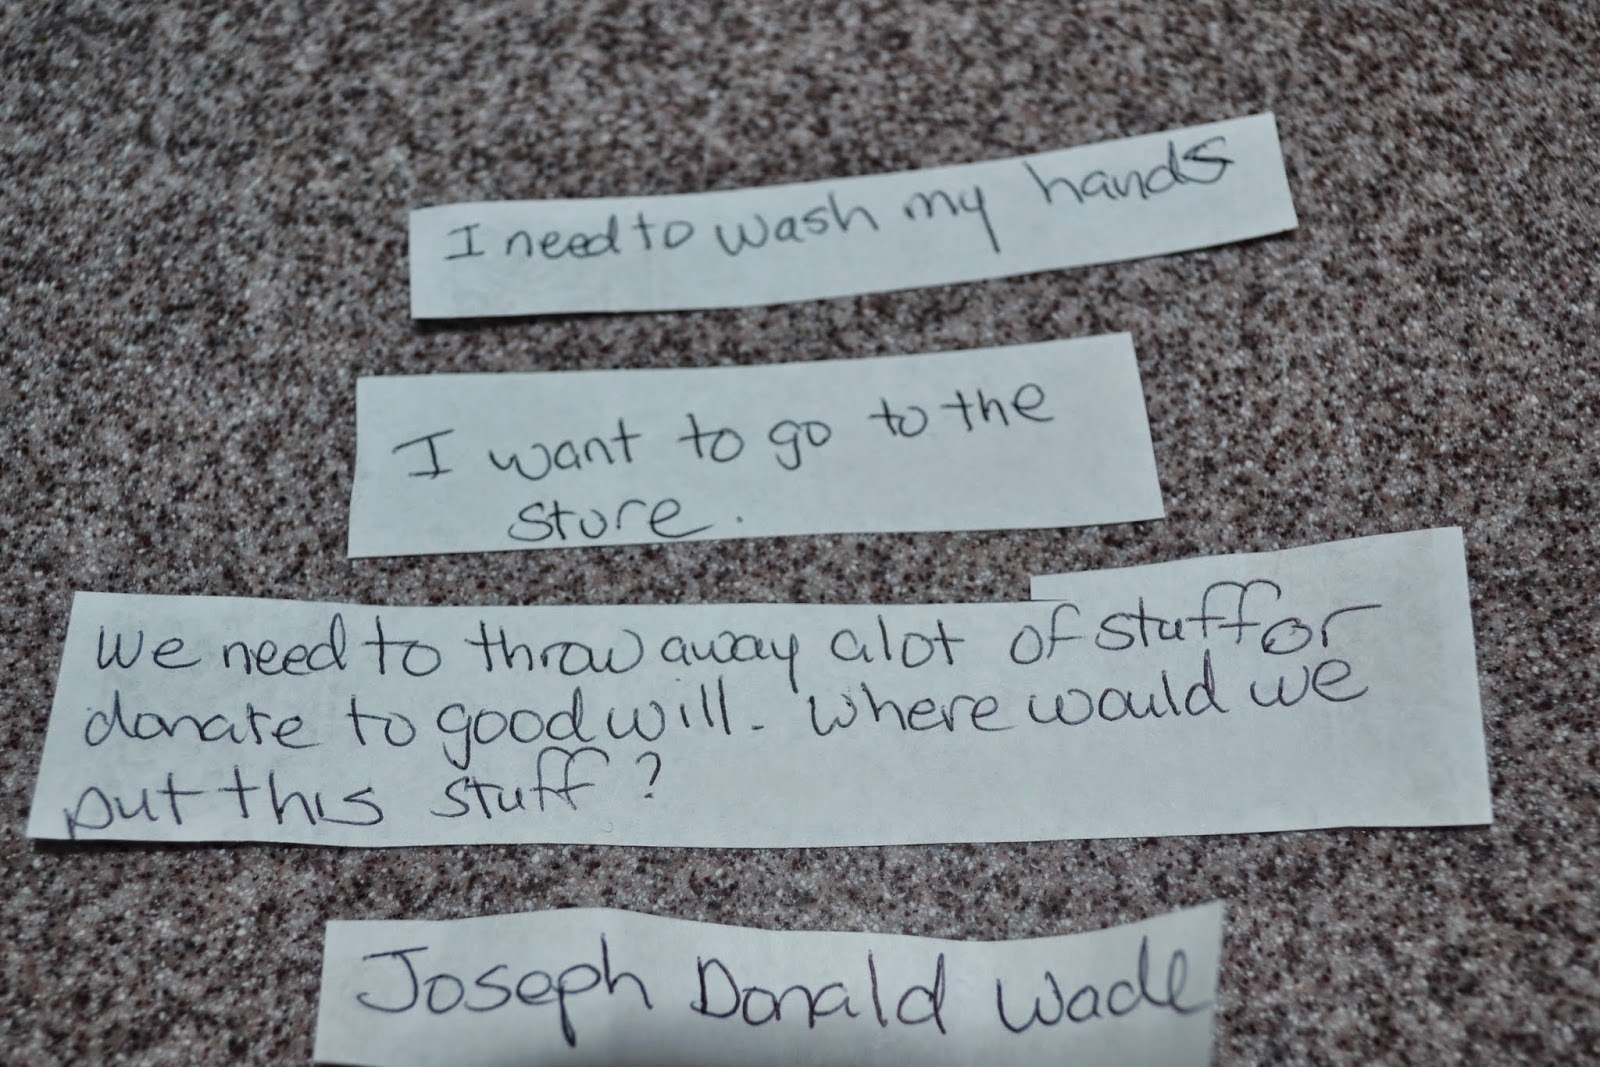 I need to wash my hands
I want to go to the
store.
We need to throw away alot of stuff or
donate to good will. Where would we
put this stuff?
Joseph Donald Wade